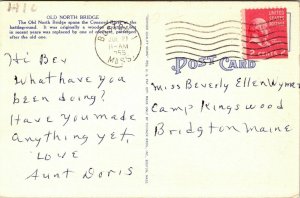 OLD NORTH BRIDGE
The Old North Bridge spans the Concord
battleground. It was originally a wooden
in recent years was replaced by one of patterned
after the old one.
Hi Bev
What have you
been doing?
Have you made
anything yet,
LOVE
Aunt Doris
MASS.
UNITED STATES
POSTAGE
POST CARD
Miss Beverly Ellen Wymer
Camp Kingswood
Bridgton Maine